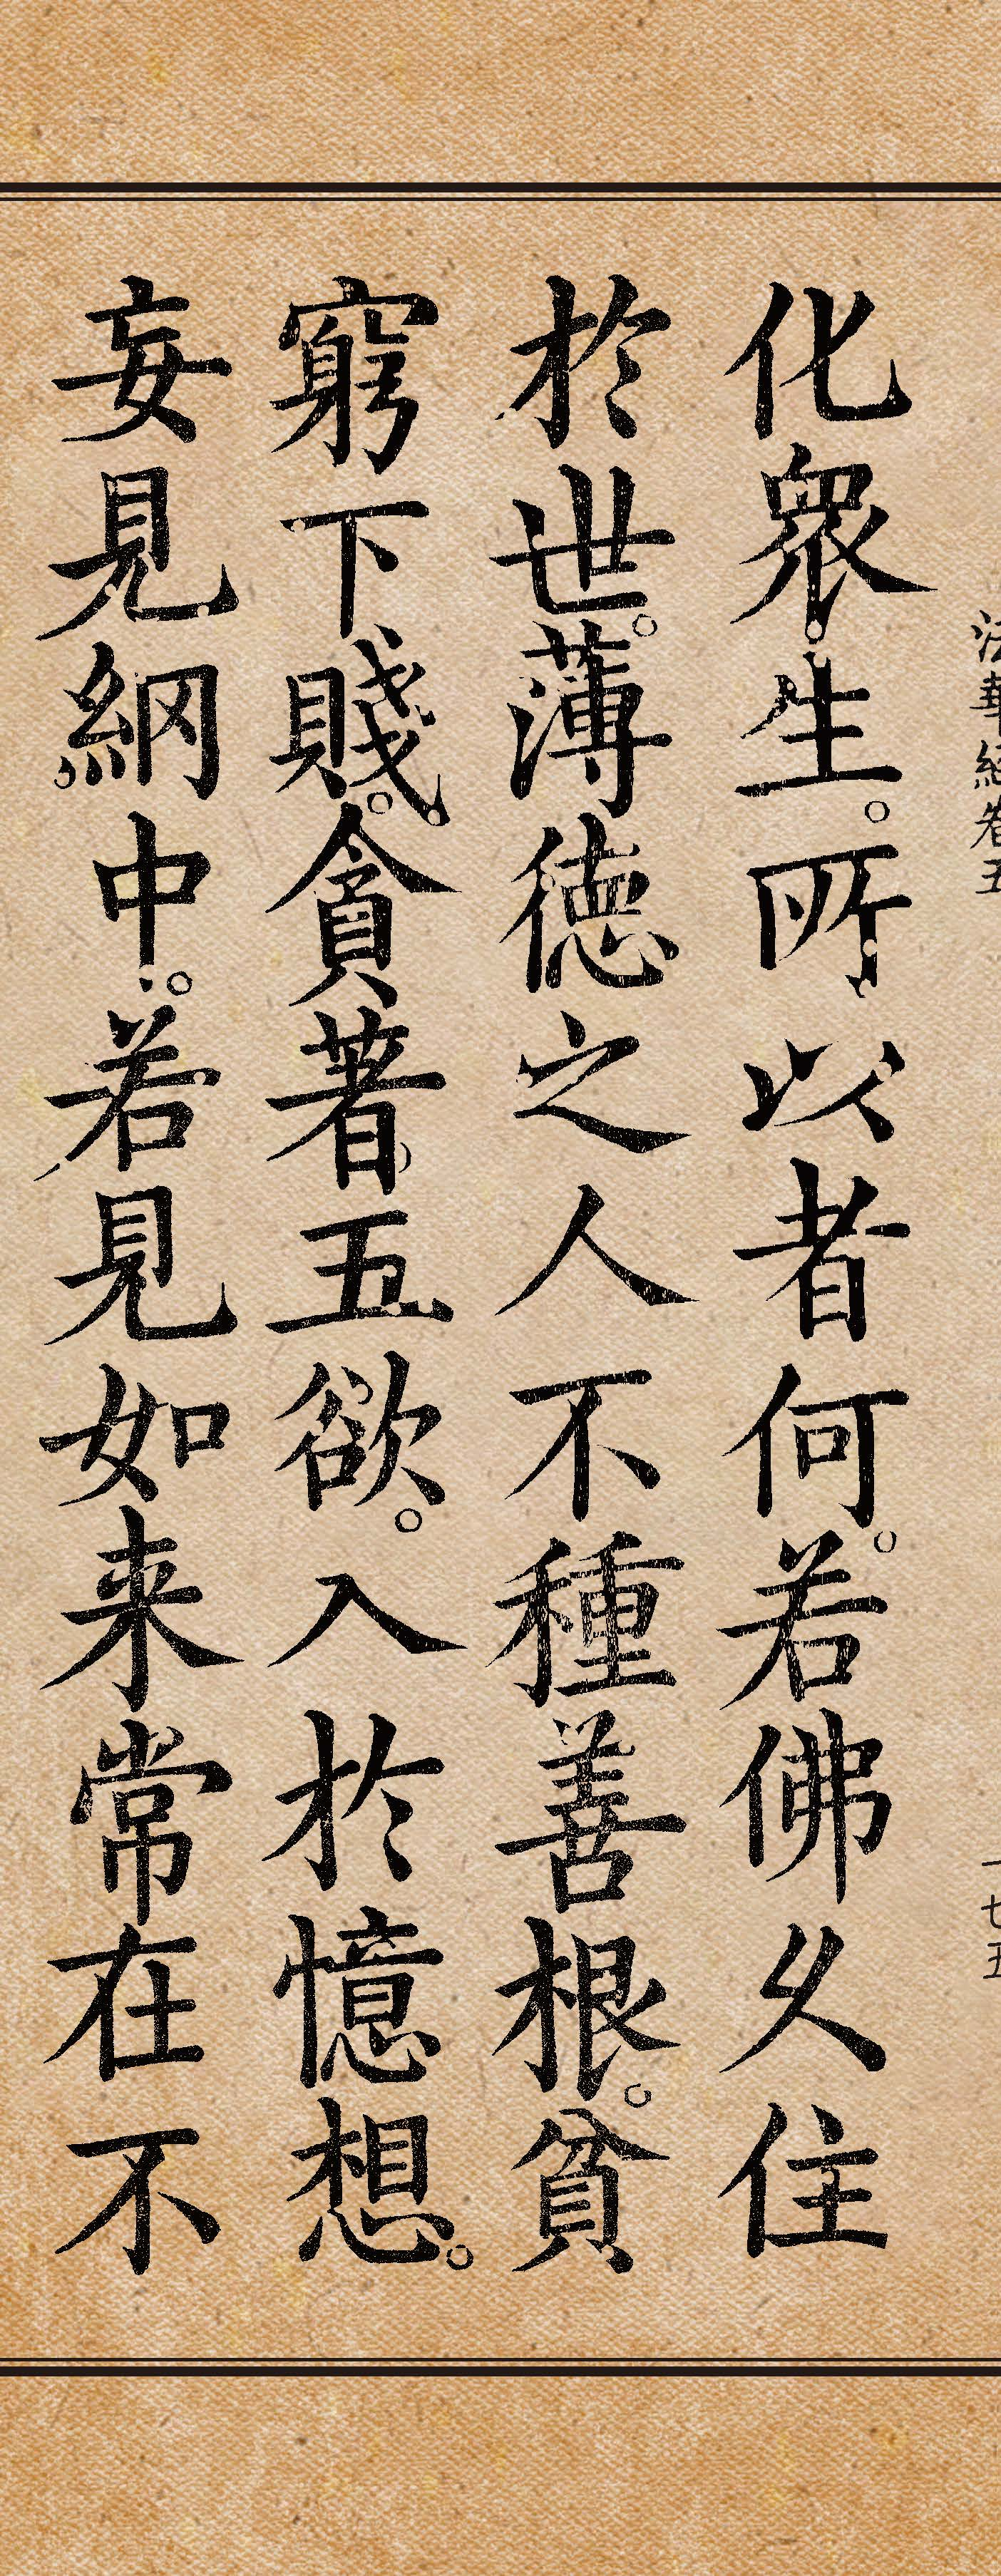 法華經卷五 一七五
化衆生。所以者何。若佛久住
於世。薄德之人不種善根。貧
窮下賤。貪著五欲。入於憶想
妄見網中。若見如来常在不